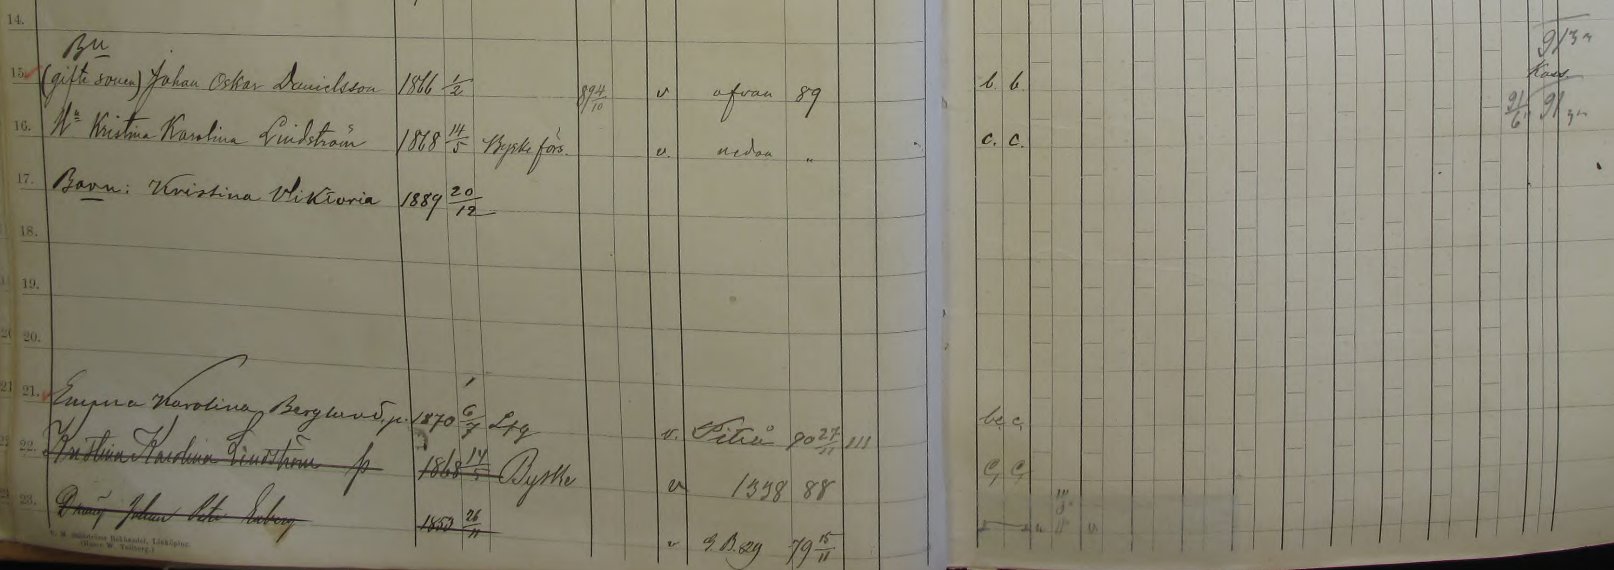 14.
15. (gifte sonen) Johan Oskar Danielsson 1866 1/2 89 4/10 v ofvan 89 b. b. Kass.
16. Hu Kristina Karolina Lindström 1868 14/5 Byske förs. v. nedan " c. c. 91
17. Barn: Kristina Viktoria 1889 20/12
18.
19.
20.
21. Emma Karolina Berglund, p. 1870 6/7 Lfg v. Piteå 90 27/11 111
22. Kristina Karolina Lindström p 1868 14/5 Byske v 1338 88
23. Dräng Johan Petr Enberg 1853 26/11 v g.B.29 79 15/11